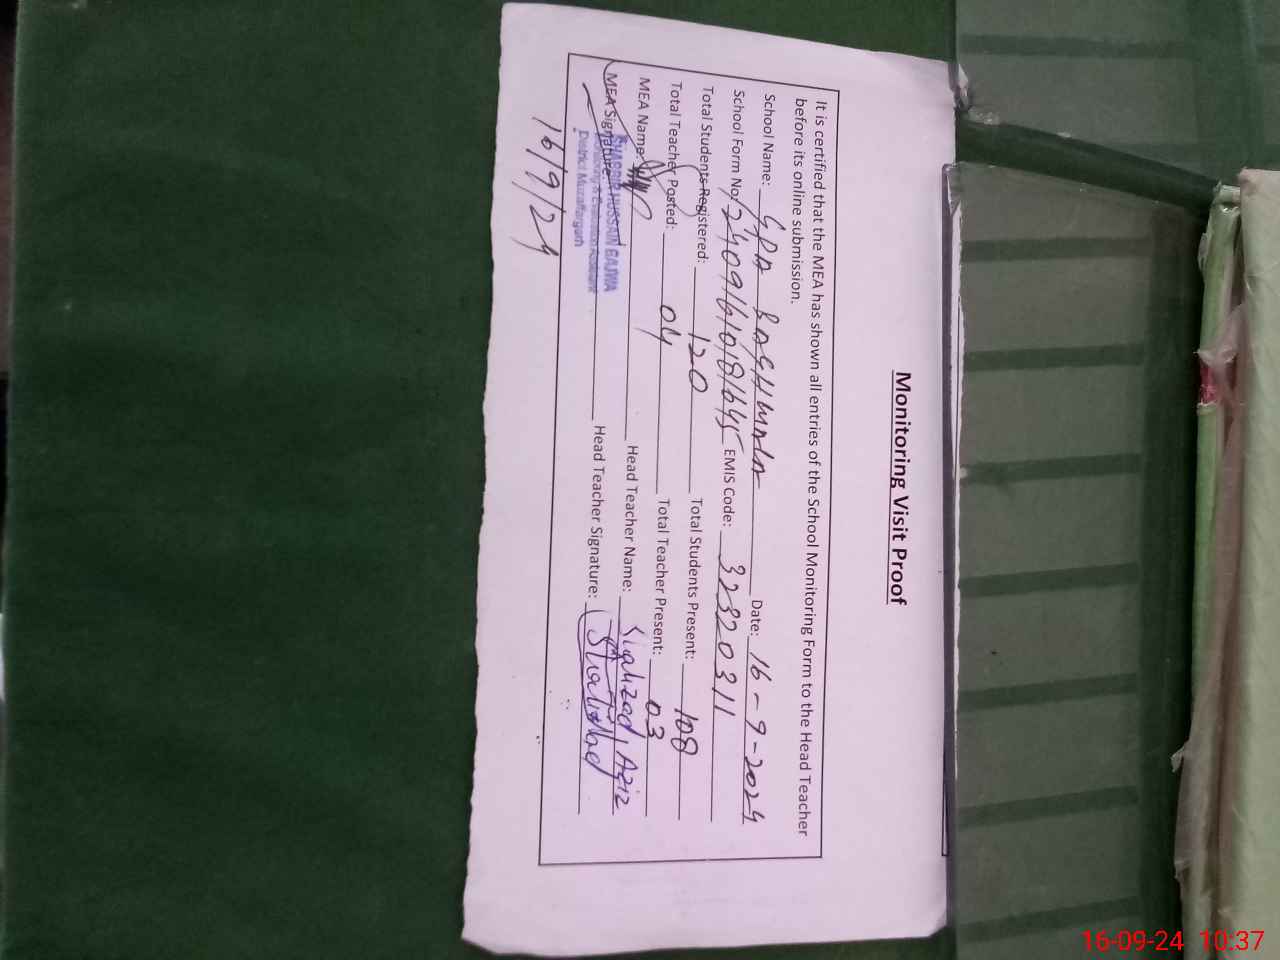 Monitoring Visit Proof
It is certified that the MEA has shown all entries of the School Monitoring Form to the Head Teacher
before its online submission.
School Name: GPA BASHMALA Date: 16-9-2024
School Form No: EMIS Code: 32320311
Total Students Registered: 120 Total Students Present: 108
Total Teacher Posted: 04 Total Teacher Present: 03
MEA Name: Head Teacher Name: Shahzad Aziz
MEA Signature: Head Teacher Signature:
HUSSAIN BAJWA
Monitoring & Evaluation Assistant
District Muzaffargarh
16/9/24
16-09-24 10:37